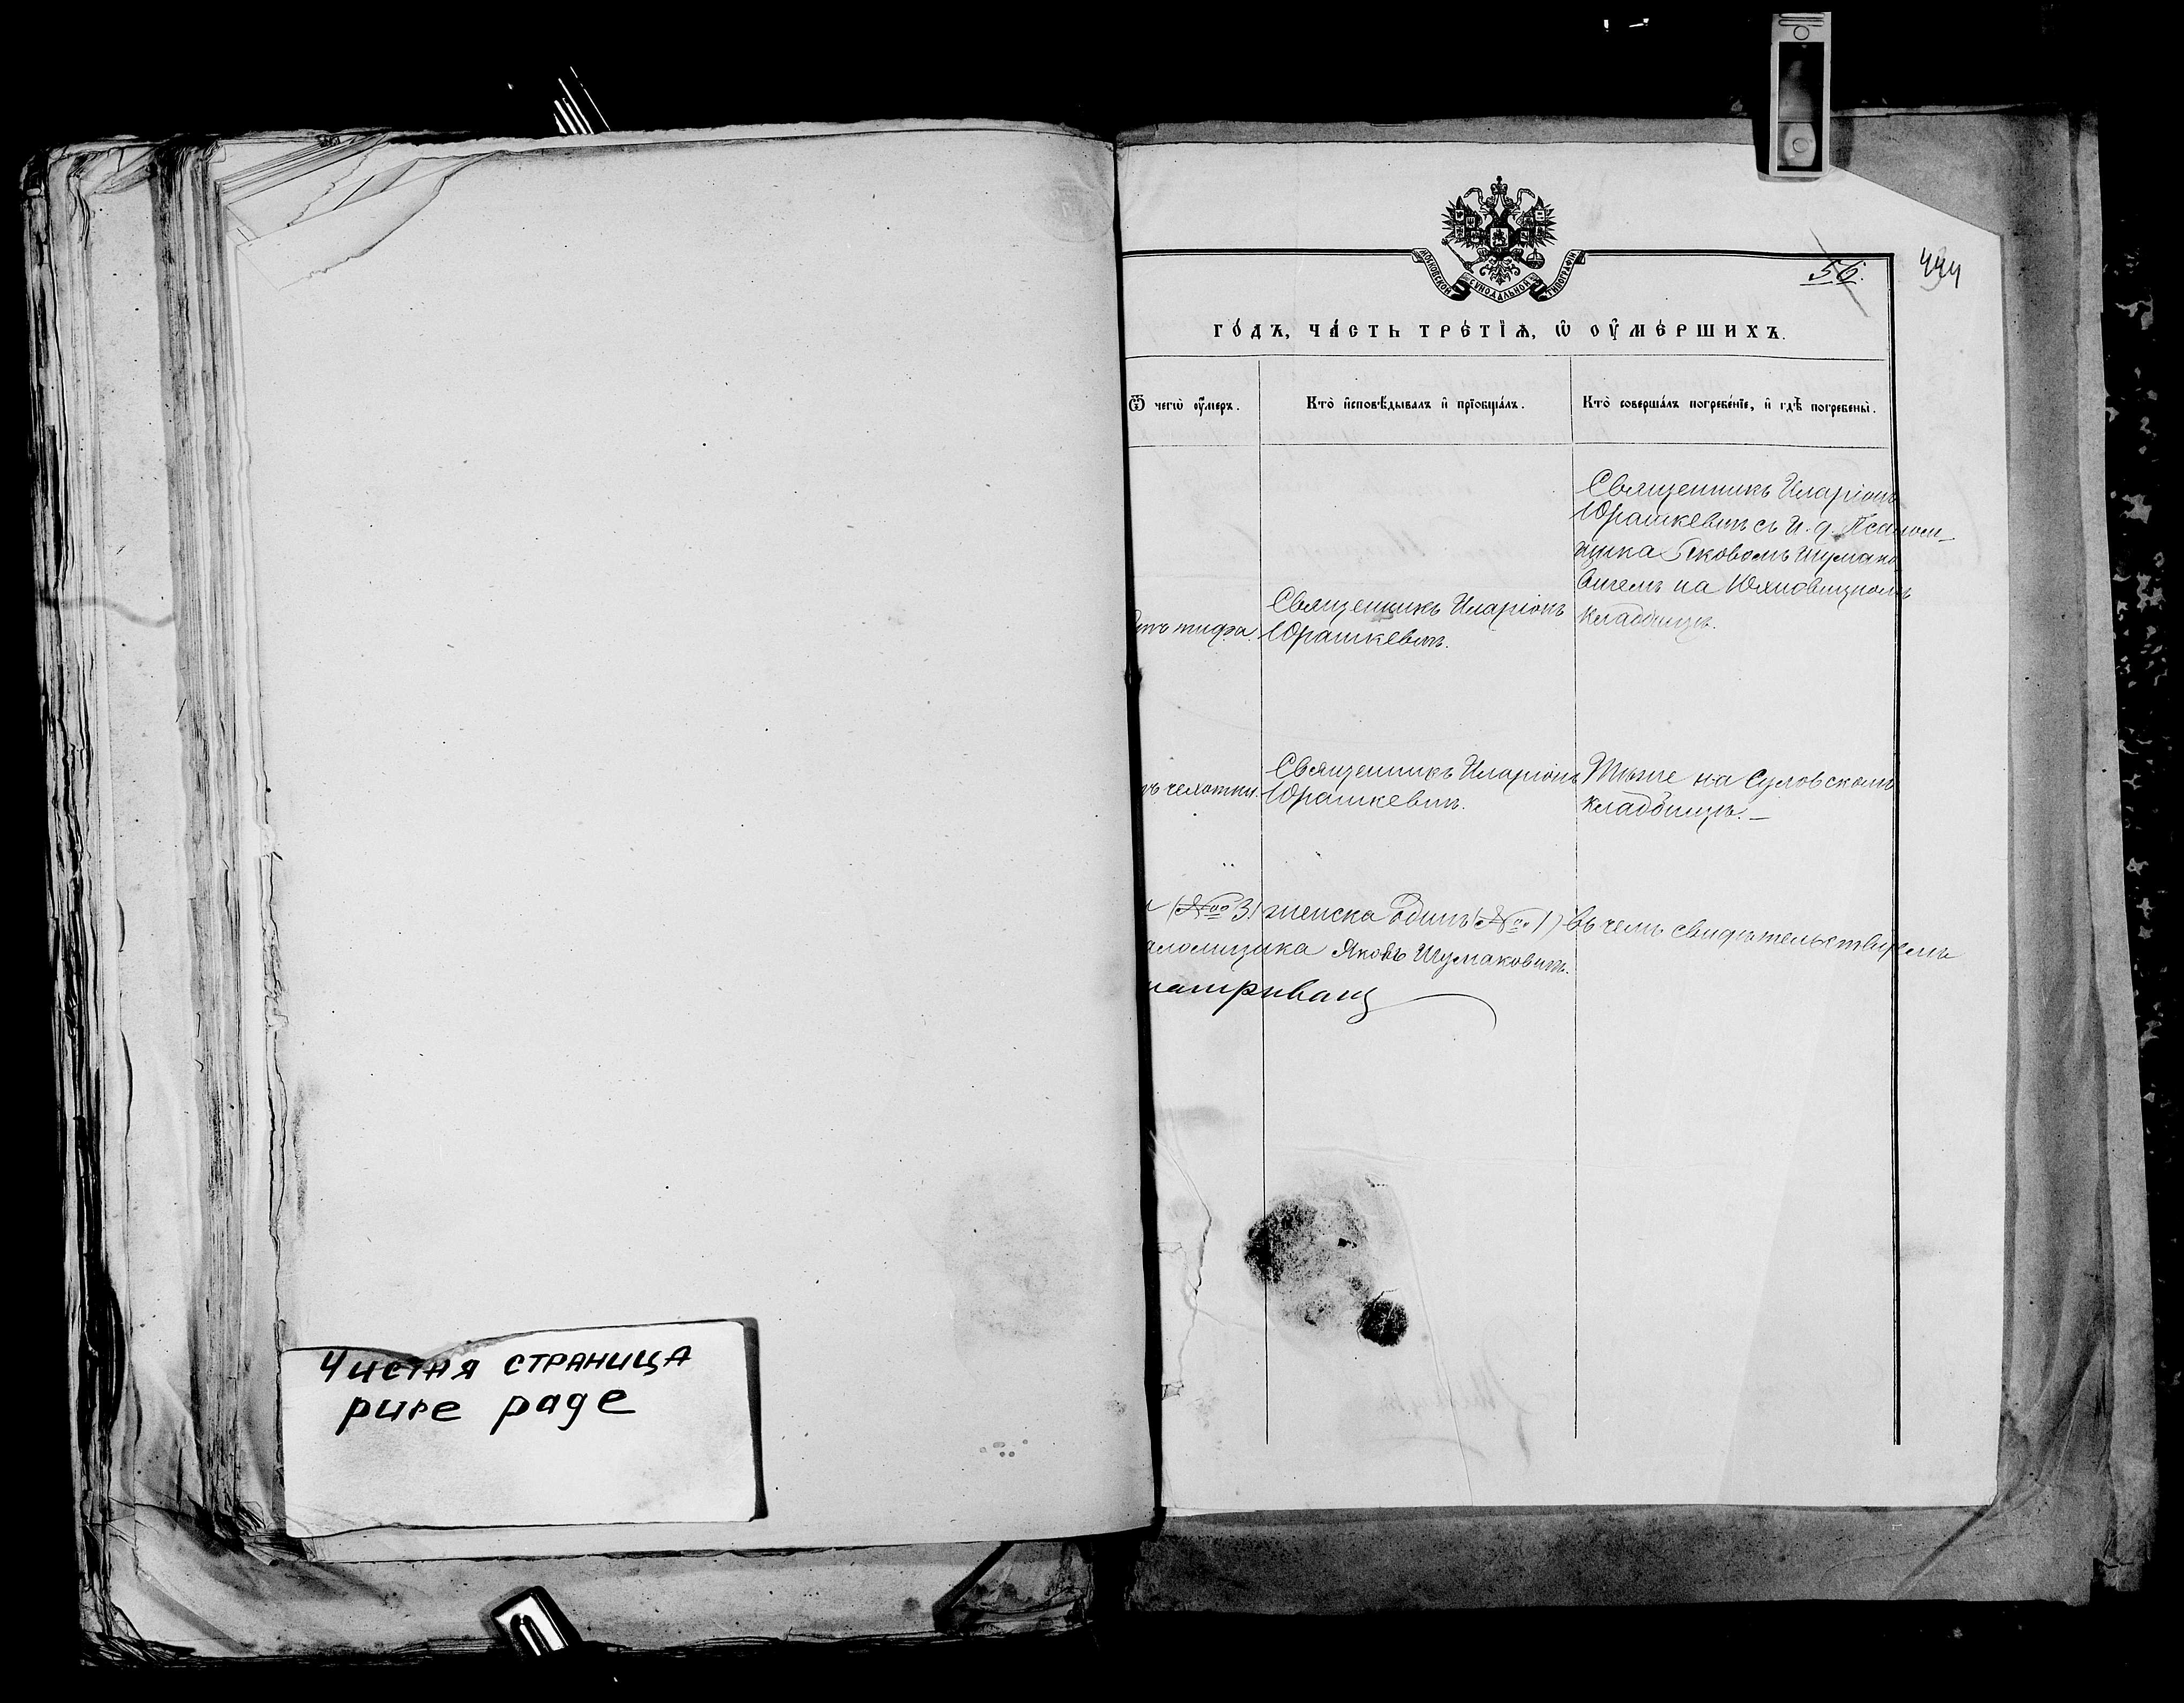 Чистая страница
pure page
МОСКОВСКОЙ СѴНОДАЛЬНОЙ ТИПОГРАФІИ
56.
444
го́дъ, ча́сть тре́тїѧ, ѡ҆ оу҆ме́ршихъ.
Ѿ чегѡ̀ оу҆́меръ.
Кто̀ и҆сповѣ́дывалъ и҆ прїобща́лъ.
Кто̀ соверша́лъ погребе́нїе, и҆ гдѣ̀ погребены̀.
Священникъ Иларіонъ
Юрашкевичъ съ и. д. Псалом-
щика Яковомъ Шумако
вичемъ на Юхновицкомъ
кладбищѣ.
отъ тифа.
Священникъ Иларіонъ
Юрашкевичъ.
чахотки.
Священникъ Иларіонъ
Юрашкевичъ.
Тѣже на Суловскомъ
кладбищѣ. –
(№ 3) женска одинъ (№ 1) въ чемъ свидѣтельствуемъ
аломщика Яковъ Шумаковичъ.